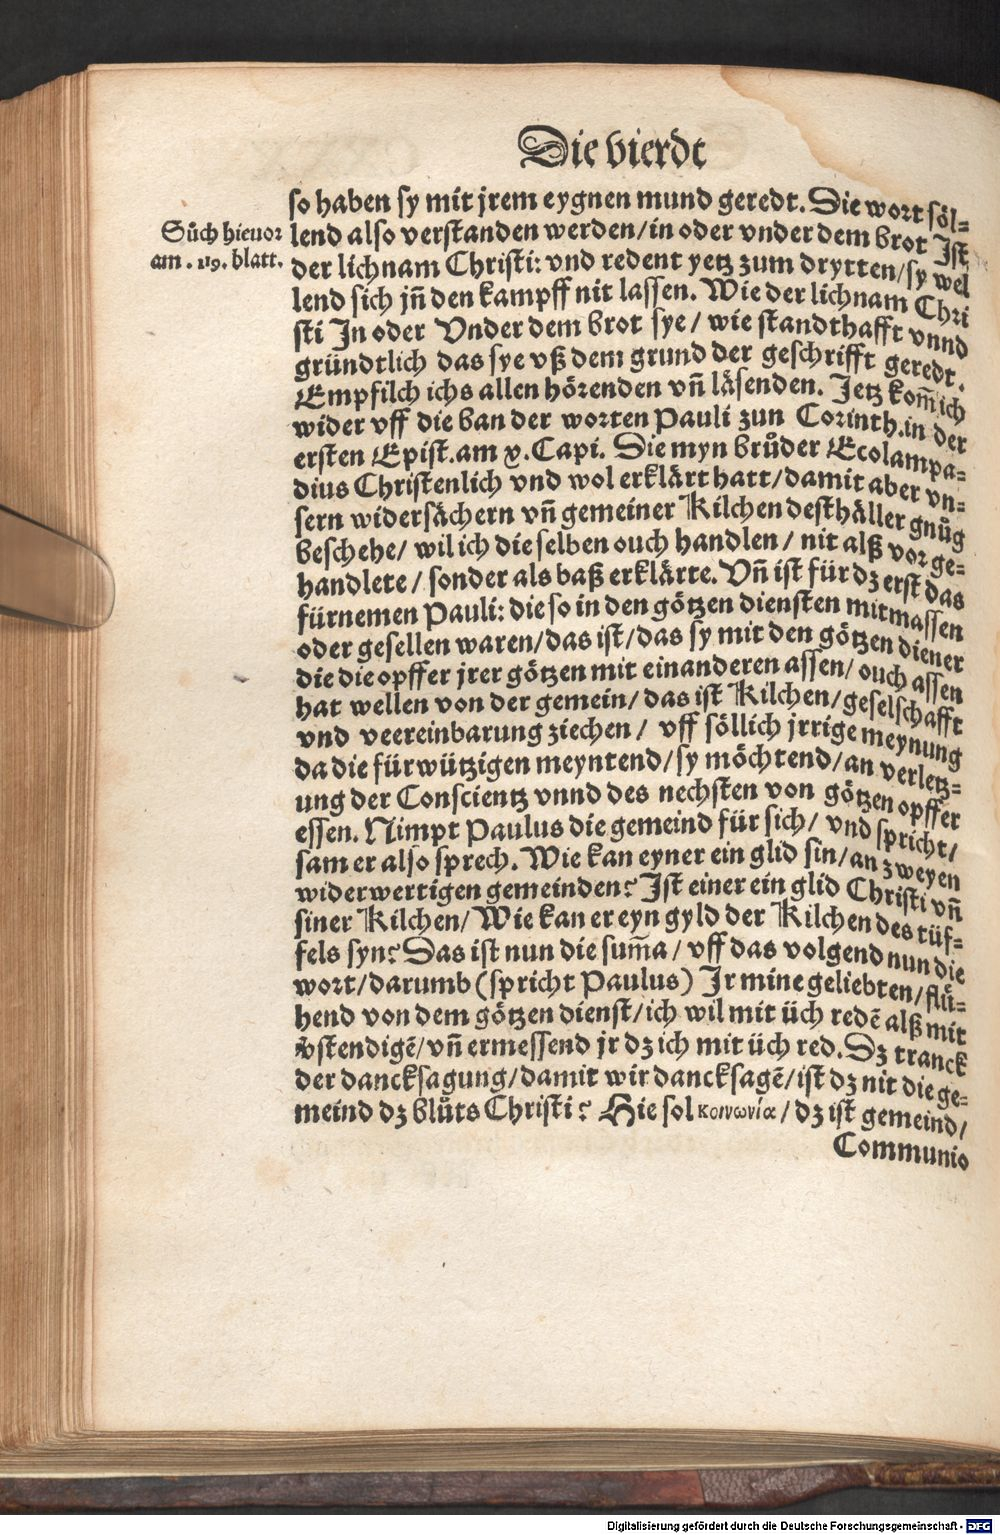 Die vierdt
so haben sy mit jrem eygnen mund geredt. Die wort söl-
Sůch hieuor
am . 119. blatt.
lend also verstanden werden/ in oder vnder dem brot Ist
der lichnam Christi: vnd redent yetz zum drytten/ sy wel
lend sich jñ den kampff nit lassen. Wie der lichnam Chri
sti In oder Vnder dem brot sye/ wie standthafft vnnd
gründtlich das sye vß dem grund der geschrifft geredt.
Empfilch ichs allen hörenden vñ läsenden. Jetz kom̃ ich
wider vff die ban der worten Pauli zun Corinth. in der
ersten Epist. am x. Capi. Die myn brůder Ecolampa-
dius Christenlich vnd wol erklärt hatt/ damit aber vn-
sern widersächern vñ gemeiner Kilchen desthäller gnůg
beschehe/ wil ich die selben ouch handlen/ nit alß vor ge-
handlete/ sonder als baß erklärte. Vñ ist für dz erst das
fürnemen Pauli: die so in den götzen diensten mitmassen
oder gesellen waren/ das ist/ das sy mit den götzen diener
die die opffer jrer götzen mit einanderen assen/ ouch assen
hat wellen von der gemein/ das ist Kilchen/ geselschafft
vnd veereinbarung ziechen/ vff söllich jrrige meynung
da die fürwützigen meyntend/ sy möchtend/ an verletz-
ung der Conscientz vnnd des nechsten von götzen opffer
essen. Nimpt Paulus die gemeind für sich/ vnd spricht/
sam er also sprech. Wie kan eyner ein glid sin/ an zweyen
widerwertigen gemeinden? Ist einer ein glid Christi vñ
siner Kilchen/ Wie kan er eyn gyld der Kilchen des tüf-
fels syn? Das ist nun die sum̃a/ vff das volgend nun die
wort/ darumb (spricht Paulus) Ir mine geliebten/ flü-
hend von dem götzen dienst/ ich wil mit üch redē alß mit
v̊stendigē/ vñ ermessend jr dz ich mit üch red. Dz tranck
der dancksagung/ damit wir dancksagē/ ist dz nit die ge-
meind dz blůts Christi? Hie sol κοινωνία/ dz ist gemeind/
Communio
Digitalisierung gefördert durch die Deutsche Forschungsgemeinschaft - DFG